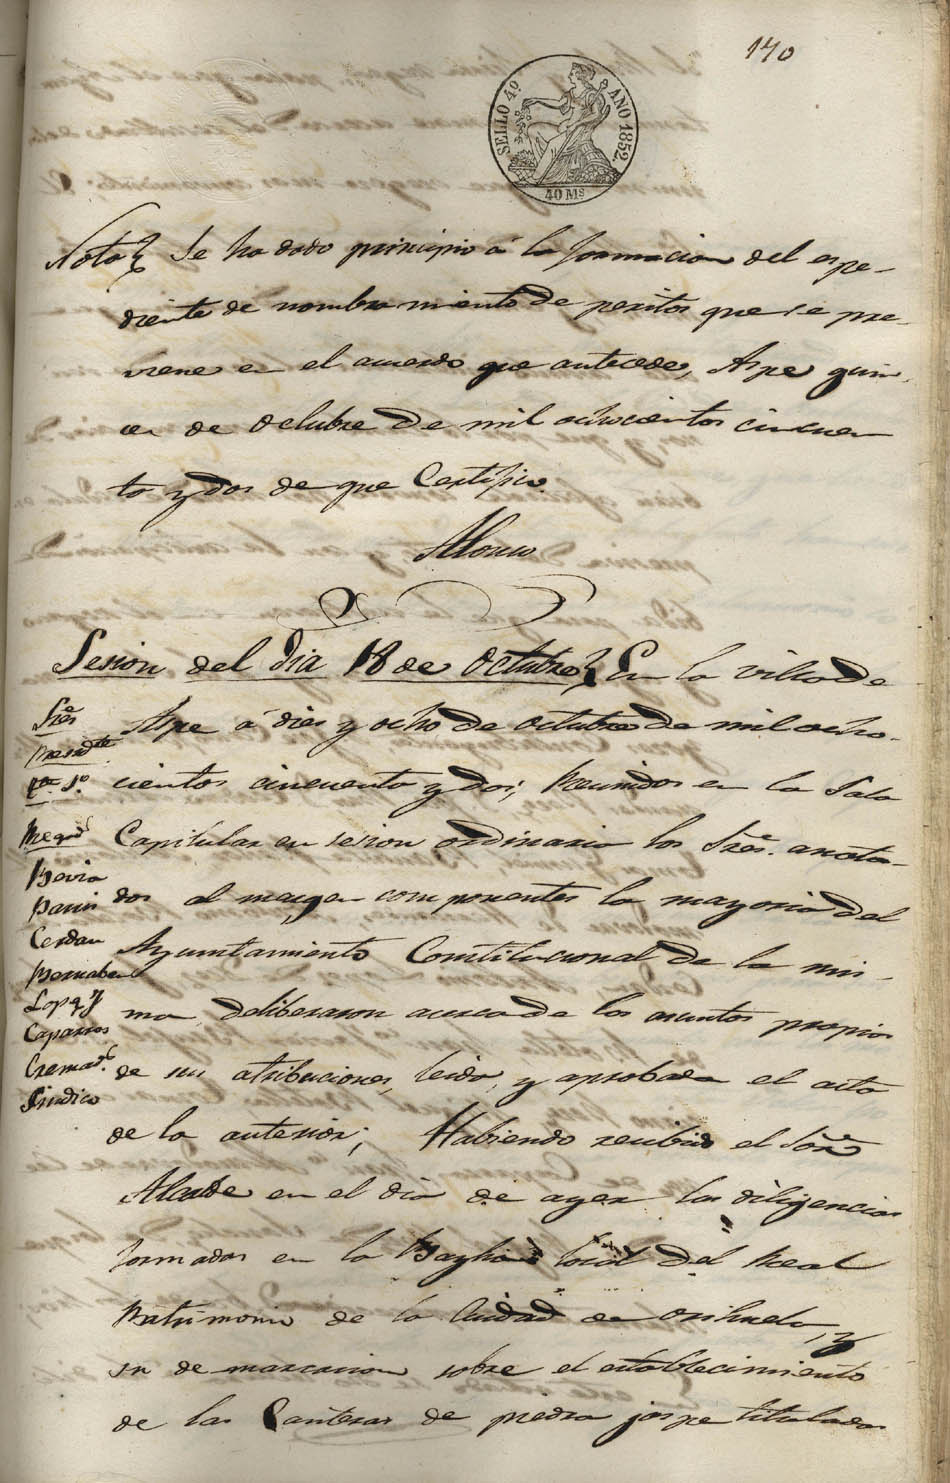 170
SELLO 4º AÑO 1852.
40 Ms
Nota Se ha dado principio á la formacion del espe-
diente de nombramiento de peritos que se pre-
viene en el acuerdo que antecede, Aspe quin-
ce de Octubre de mil ochocientos cincuen
ta y dos de que Certifico.
Alonso
Sesion del dia 18 de Octubre En la villa de
Aspe á dies y ocho de octubre de mil ocho-
cientos cincuenta y dos; Reunidos en la Sala
Capitular en sesion ordinaria los Sres. anota-
dos al margen componentes la mayoria del
Ayuntamiento Constitucional de la mis-
ma, deliberaron acerca de los asuntos propios
de sus atribuciones, leida, y aprobada el acta
de la anterior; Habiendo recibido el Sor
Alcalde en el dia de ayer las diligencias
formadas en la Baylia local del Real
Patrimonio de la Ciudad de Orihuela, y
su demarcacion sobre el establecimiento
de las Canteras de piedra jaspe tituladas
Sres
Presidte
Pavia
Cerdan
Bernabeu
Lopez
Caparros
Cremads.
Sindico